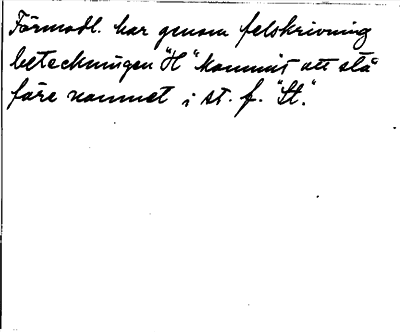 Förmodl. har genom felskrivning
beteckningen "H" kommit att stå
före namnet i st. f. "St".